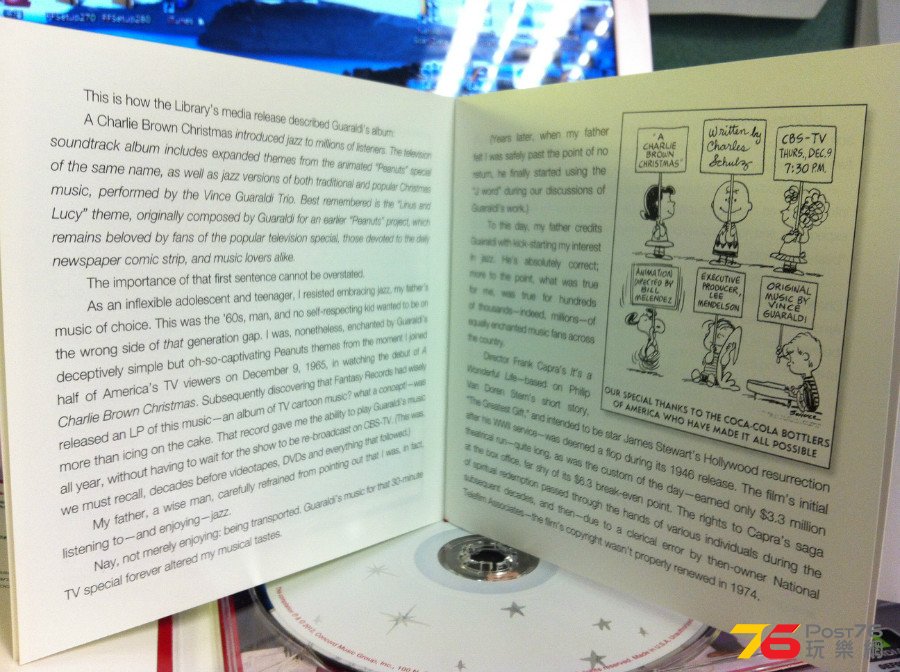 FFSetup270 FFSetup280 iTunes
This is how the Library's media release described Guaraldi's album:
A Charlie Brown Christmas introduced jazz to millions of listeners. The television
soundtrack album includes expanded themes from the animated "Peanuts" special
of the same name, as well as jazz versions of both traditional and popular Christmas
music, performed by the Vince Guaraldi Trio. Best remembered is the "Linus and
Lucy" theme, originally composed by Guaraldi for an earlier "Peanuts" project, which
remains beloved by fans of the popular television special, those devoted to the daily
newspaper comic strip, and music lovers alike.
The importance of that first sentence cannot be overstated.
As an inflexible adolescent and teenager, I resisted embracing jazz, my father's
music of choice. This was the '60s, man, and no self-respecting kid wanted to be on
the wrong side of that generation gap. I was, nonetheless, enchanted by Guaraldi's
deceptively simple but oh-so-captivating Peanuts themes from the moment I joined
half of America's TV viewers on December 9, 1965, in watching the debut of A
Charlie Brown Christmas. Subsequently discovering that Fantasy Records had wisely
released an LP of this music—an album of TV cartoon music? what a concept!—was
more than icing on the cake. That record gave me the ability to play Guaraldi's music
all year, without having to wait for the show to be re-broadcast on CBS-TV. (This was,
we must recall, decades before videotapes, DVDs and everything that followed.)
My father, a wise man, carefully refrained from pointing out that I was, in fact,
listening to—and enjoying—jazz.
Nay, not merely enjoying: being transported. Guaraldi's music for that 30-minute
TV special forever altered my musical tastes.
(Years later, when my father
felt I was safely past the point of no
return, he finally started using the
"J word" during our discussions of
Guaraldi's work.)
To this day, my father credits
Guaraldi with kick-starting my interest
in jazz. He's absolutely correct;
more to the point, what was true
for me, was true for hundreds
of thousands—indeed, millions—of
equally enchanted music fans across
the country.
Director Frank Capra's It's a
Wonderful Life—based on Philip
Van Doren Stern's short story,
"The Greatest Gift," and intended to be star James Stewart's Hollywood resurrection
after his WWII service—was deemed a flop during its 1946 release. The film's initial
theatrical run—quite long, as was the custom of the day—earned only $3.3 million
at the box office, far shy of its $6.3 break-even point. The rights to Capra's saga
of spiritual redemption passed through the hands of various individuals during the
subsequent decades, and then—due to a clerical error by then-owner National
Telefilm Associates—the film's copyright wasn't properly renewed in 1974.
"A
CHARLIE
BROWN
CHRISTMAS"
Written by
Charles
Schulz
CBS-TV
THURS, DEC. 9
7:30 P.M.
ANIMATION
DIRECTED BY
BILL
MELENDEZ
EXECUTIVE
PRODUCER,
LEE
MENDELSON
ORIGINAL
MUSIC BY
VINCE
GUARALDI
SCHULZ
OUR SPECIAL THANKS TO THE COCA-COLA BOTTLERS
OF AMERICA WHO HAVE MADE IT ALL POSSIBLE
2012, Concord Music Group, Inc., 100 N
Reserved. Made in U.S.A.
76 Post76
玩樂網